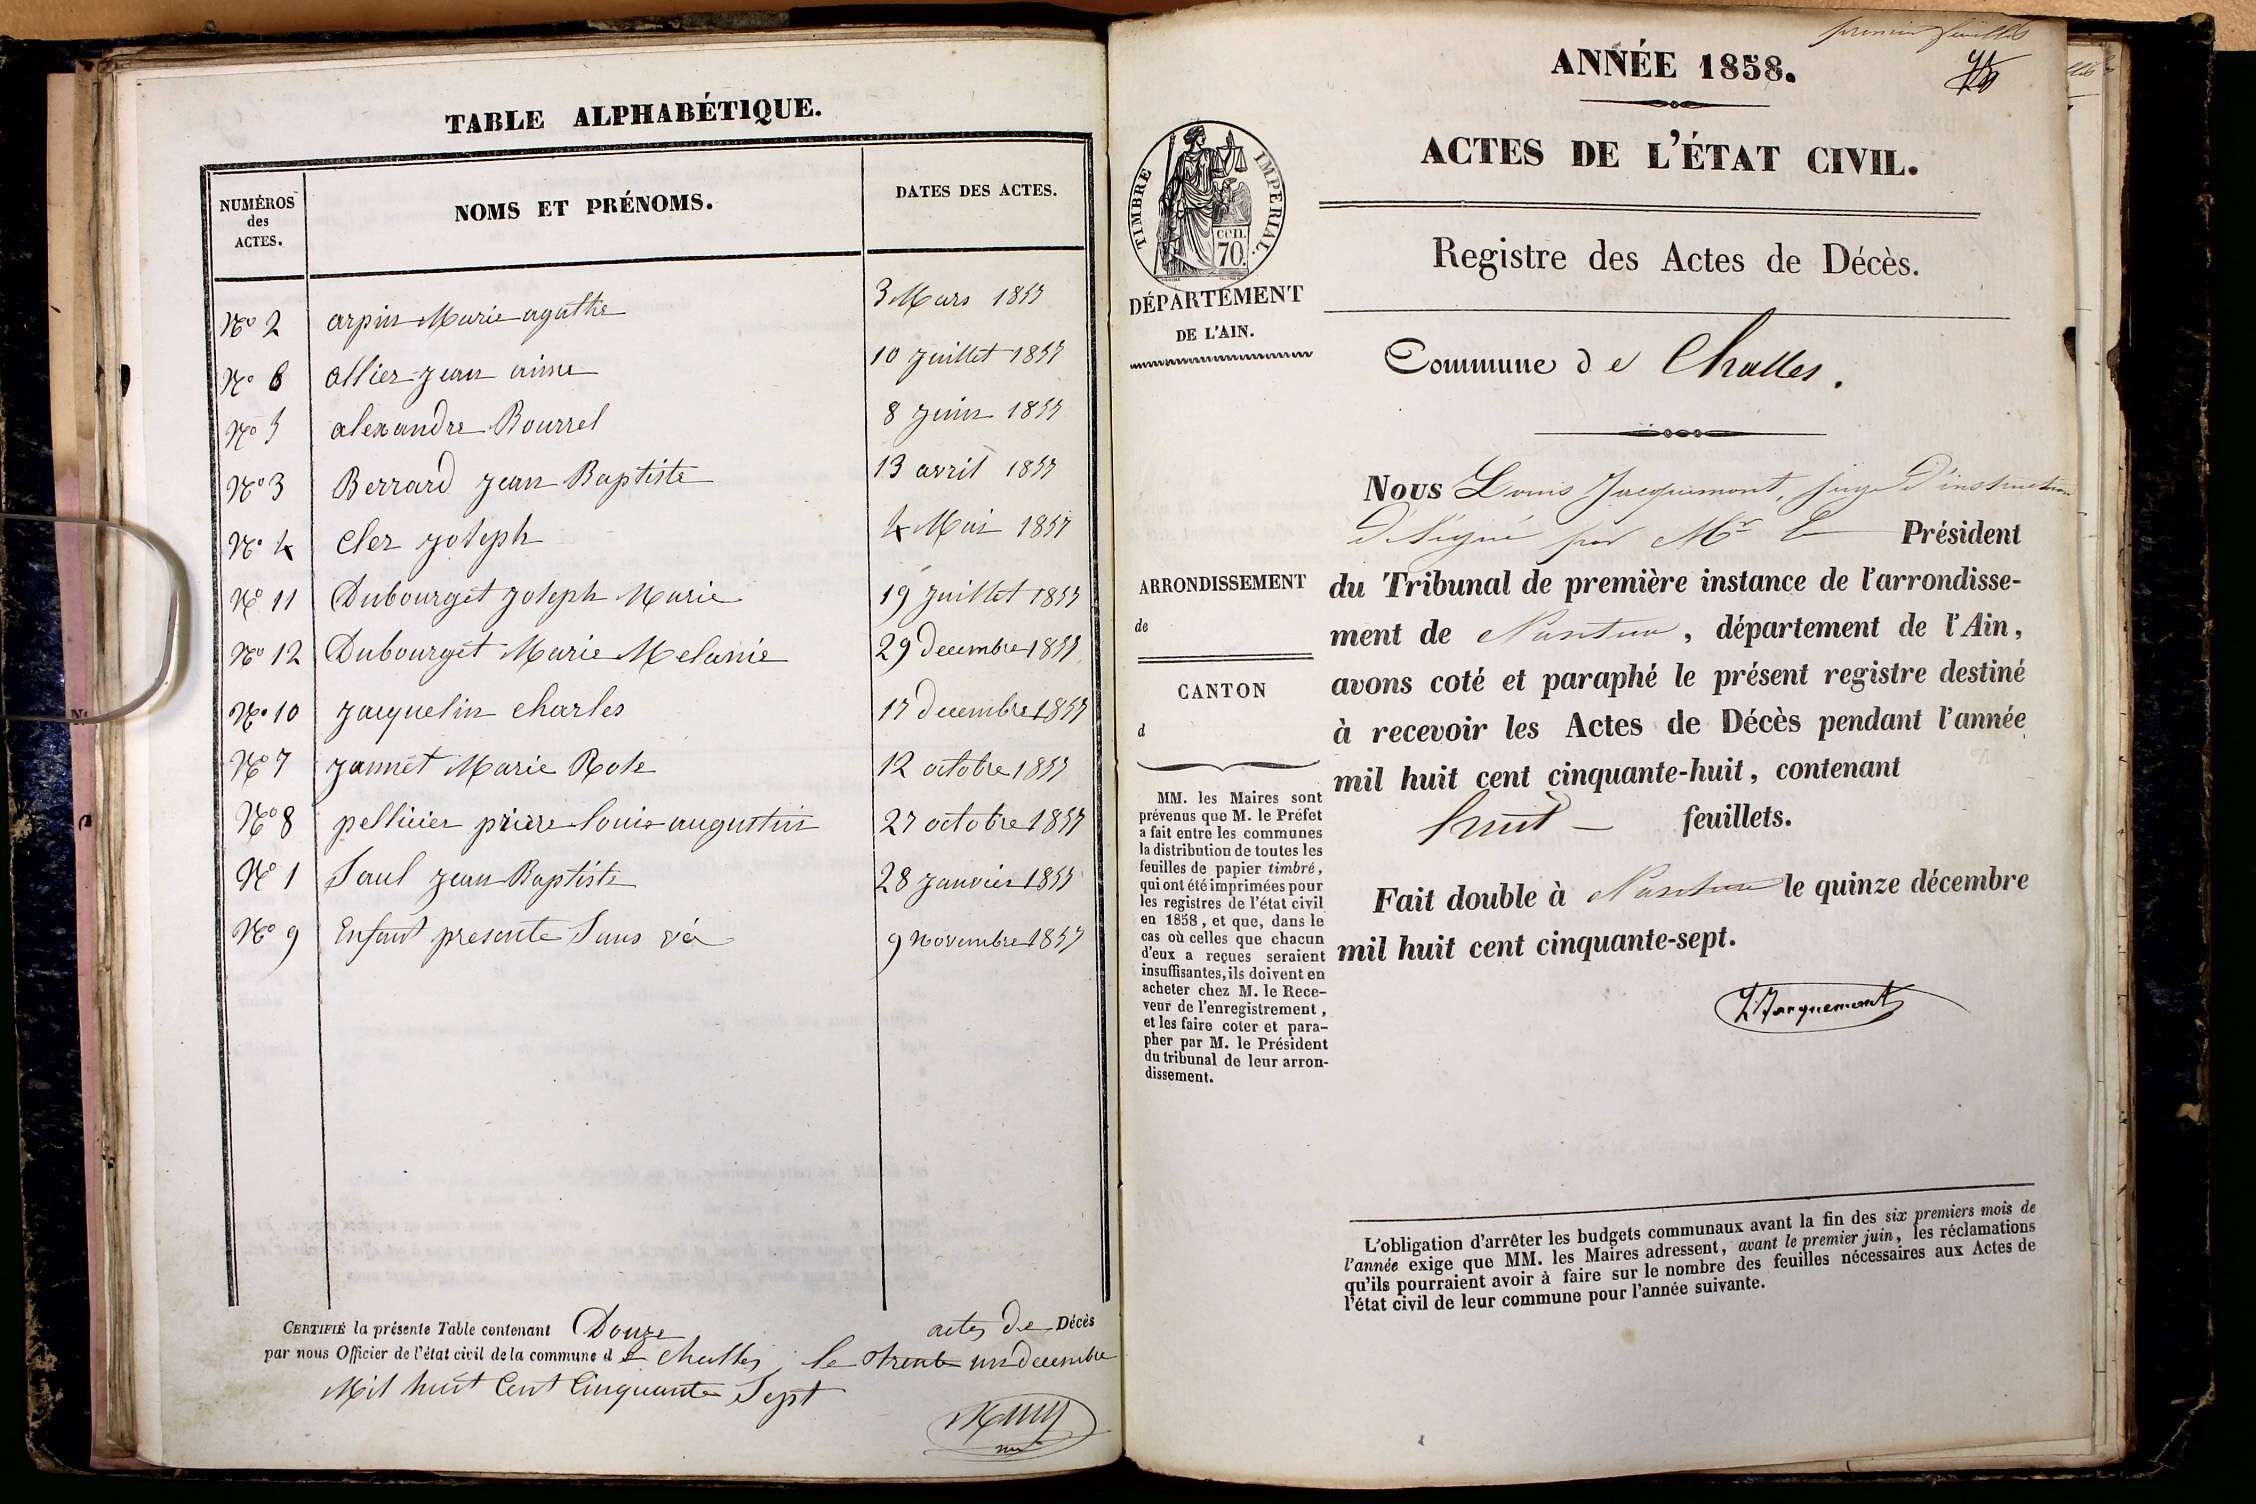 TABLE ALPHABÉTIQUE.
NUMÉROS des ACTES. NOMS ET PRÉNOMS. DATES DES ACTES.
No 2 arpin Marie agathe 3 Mars 1857
No 6 allier jean aime 10 juillet 1857
No 5 alexandre Bourrel 8 juin 1857
No 3 Berrard jean Baptiste 13 avril 1857
No 4 Cler joseph 4 Mai 1857
No 11 Dubourget joseph Marie 19 juillet 1857
No 12 Dubourget Marie Melanie 29 decembre 1857
No 10 jacquelin charles 17 decembre 1857
No 7 jannet Marie Rose 12 octobre 1857
No 8 pellicier pierre louis augustin 27 octobre 1857
No 1 Saul jean Baptiste 28 janvier 1857
No 9 Enfant presente Sans vie 9 novembre 1857
CERTIFIÉ la présente Table contenant Douze actes de Décès
par nous Officier de l'état civil de la commune de challes, le trente un decembre
Mil huit Cent Cinquante Sept
premier feuillet
ANNÉE 1858.
ACTES DE L'ÉTAT CIVIL.
TIMBRE IMPERIAL.
cen.
70.
Registre des Actes de Décès.
DÉPARTEMENT
DE L'AIN.
Commune de Challes.
Nous Louis Jacquemont, juge d'instruction
désigné par Mr le Président
du Tribunal de première instance de l'arrondisse-
ment de Nantua, département de l'Ain,
avons coté et paraphé le présent registre destiné
à recevoir les Actes de Décès pendant l'année
mil huit cent cinquante-huit, contenant
huit feuillets.
Fait double à Nantua le quinze décembre
mil huit cent cinquante-sept.
L Jacquemont
ARRONDISSEMENT
de
CANTON
d
MM. les Maires sont
prévenus que M. le Préfet
a fait entre les communes
la distribution de toutes les
feuilles de papier timbré,
qui ont été imprimées pour
les registres de l'état civil
en 1858, et que, dans le
cas où celles que chacun
d'eux a reçues seraient
insuffisantes, ils doivent en
acheter chez M. le Rece-
veur de l'enregistrement,
et les faire coter et para-
pher par M. le Président
du tribunal de leur arron-
dissement.
L'obligation d'arrêter les budgets communaux avant la fin des six premiers mois de
l'année exige que MM. les Maires adressent, avant le premier juin, les réclamations
qu'ils pourraient avoir à faire sur le nombre des feuilles nécessaires aux Actes de
l'état civil de leur commune pour l'année suivante.